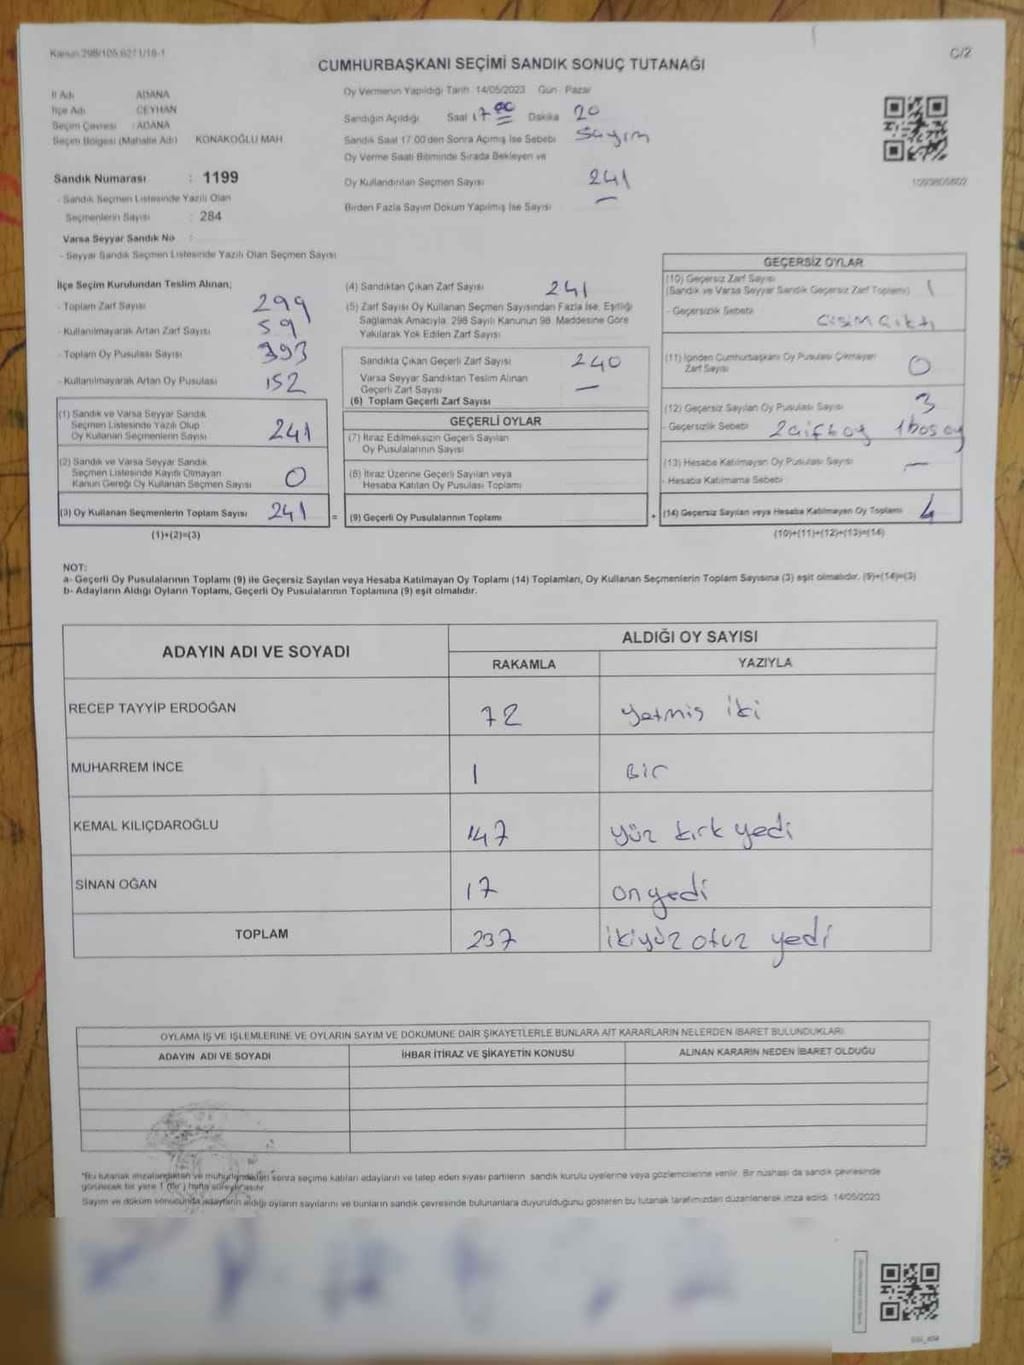 Kanun 298/105,6271/18-1
C/2
CUMHURBAŞKANI SEÇİMİ SANDIK SONUÇ TUTANAĞI
İl Adı ADANA
İlçe Adı CEYHAN
Seçim Çevresi : ADANA
Seçim Bölgesi (Mahalle Adı) KONAKOĞLU MAH
Sandık Numarası : 1199
- Sandık Seçmen Listesinde Yazılı Olan
Seçmenlerin Sayısı : 284
Varsa Seyyar Sandık No
- Seyyar Sandık Seçmen Listesinde Yazılı Olan Seçmen Sayısı
Oy Vermenin Yapıldığı Tarih 14/05/2023 Gün Pazar
Sandığın Açıldığı Saat 17 00 Dakika 20
Sandık Saat 17:00'den Sonra Açılmış İse Sebebi Sayım
Oy Verme Saati Bitiminde Sırada Bekleyen ve
Oy Kullandırılan Seçmen Sayısı 241
Birden Fazla Sayım Döküm Yapılmış İse Sayısı —
İlçe Seçim Kurulundan Teslim Alınan;
- Toplam Zarf Sayısı 299
- Kullanılmayarak Artan Zarf Sayısı 59
- Toplam Oy Pusulası Sayısı 393
- Kullanılmayarak Artan Oy Pusulası 152
(1) Sandık ve Varsa Seyyar Sandık
Seçmen Listesinde Yazılı Olup
Oy Kullanan Seçmenlerin Sayısı 241
(2) Sandık ve Varsa Seyyar Sandık
Seçmen Listesinde Kayıtlı Olmayan
Kanun Gereği Oy Kullanan Seçmen Sayısı 0
(3) Oy Kullanan Seçmenlerin Toplam Sayısı 241
(1)+(2)=(3)
(4) Sandıktan Çıkan Zarf Sayısı 241
(5) Zarf Sayısı Oy Kullanan Seçmen Sayısından Fazla İse, Eşitliği
Sağlamak Amacıyla, 298 Sayılı Kanunun 98. Maddesine Göre
Yakılarak Yok Edilen Zarf Sayısı
Sandıkta Çıkan Geçerli Zarf Sayısı 240
Varsa Seyyar Sandıktan Teslim Alınan
Geçerli Zarf Sayısı —
(6) Toplam Geçerli Zarf Sayısı
GEÇERLİ OYLAR
(7) İtiraz Edilmeksizin Geçerli Sayılan
Oy Pusulalarının Sayısı
(8) İtiraz Üzerine Geçerli Sayılan veya
Hesaba Katılan Oy Pusulası Toplamı
= (9) Geçerli Oy Pusulalarının Toplamı +
GEÇERSİZ OYLAR
(10) Geçersiz Zarf Sayısı
(Sandık ve Varsa Seyyar Sandık Geçersiz Zarf Toplamı) 1
- Geçersizlik Sebebi cisim çıktı
(11) İçinden Cumhurbaşkanı Oy Pusulası Çıkmayan
Zarf Sayısı 0
(12) Geçersiz Sayılan Oy Pusulası Sayısı 3
- Geçersizlik Sebebi 2 çift oy 1 boş oy
(13) Hesaba Katılmayan Oy Pusulası Sayısı —
- Hesaba Katılmama Sebebi
(14) Geçersiz Sayılan veya Hesaba Katılmayan Oy Toplamı 4
(10)+(11)+(12)+(13)=(14)
NOT:
a- Geçerli Oy Pusulalarının Toplamı (9) ile Geçersiz Sayılan veya Hesaba Katılmayan Oy Toplamı (14) Toplamları, Oy Kullanan Seçmenlerin Toplam Sayısına (3) eşit olmalıdır. (9)+(14)=(3)
b- Adayların Aldığı Oyların Toplamı, Geçerli Oy Pusulalarının Toplamına (9) eşit olmalıdır.
ADAYIN ADI VE SOYADI
ALDIĞI OY SAYISI
RAKAMLA YAZIYLA
RECEP TAYYİP ERDOĞAN 72 yetmiş iki
MUHARREM İNCE 1 Bir
KEMAL KILIÇDAROĞLU 147 yüz kırk yedi
SİNAN OĞAN 17 on yedi
TOPLAM 237 ikiyüz otuz yedi
OYLAMA İŞ VE İŞLEMLERİNE VE OYLARIN SAYIM VE DÖKÜMÜNE DAİR ŞİKAYETLERLE BUNLARA AİT KARARLARIN NELERDEN İBARET BULUNDUKLARI
ADAYIN ADI VE SOYADI İHBAR İTİRAZ VE ŞİKAYETİN KONUSU ALINAN KARARIN NEDEN İBARET OLDUĞU
*Bu tutanak imzalandıktan ve mühürlendikten sonra seçime katılan adayların ve talep eden siyasi partilerin sandık kurulu üyelerine veya gözlemcilerine verilir. Bir nüshası da sandık çevresinde
görülecek bir yere 1 (bir) hafta süreyle asılır
Sayım ve döküm sonucunda adayların aldığı oyların sayılarını ve bunların sandık çevresinde bulunanlara duyurulduğunu gösteren bu tutanak tarafımızdan düzenlenerek imza edildi. 14/05/2023